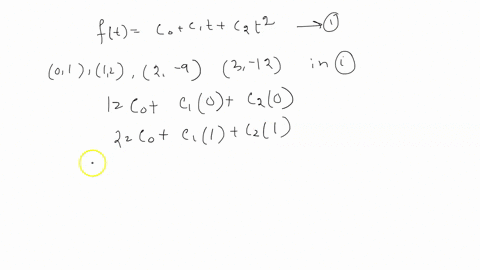 f(t) = c0 + c1t + c2t² → ①
(0,1), (1,2), (2, -9) (3, -12) in ⓘ
1 = c0 + c1(0) + c2(0)
2 = c0 + c1(1) + c2(1)